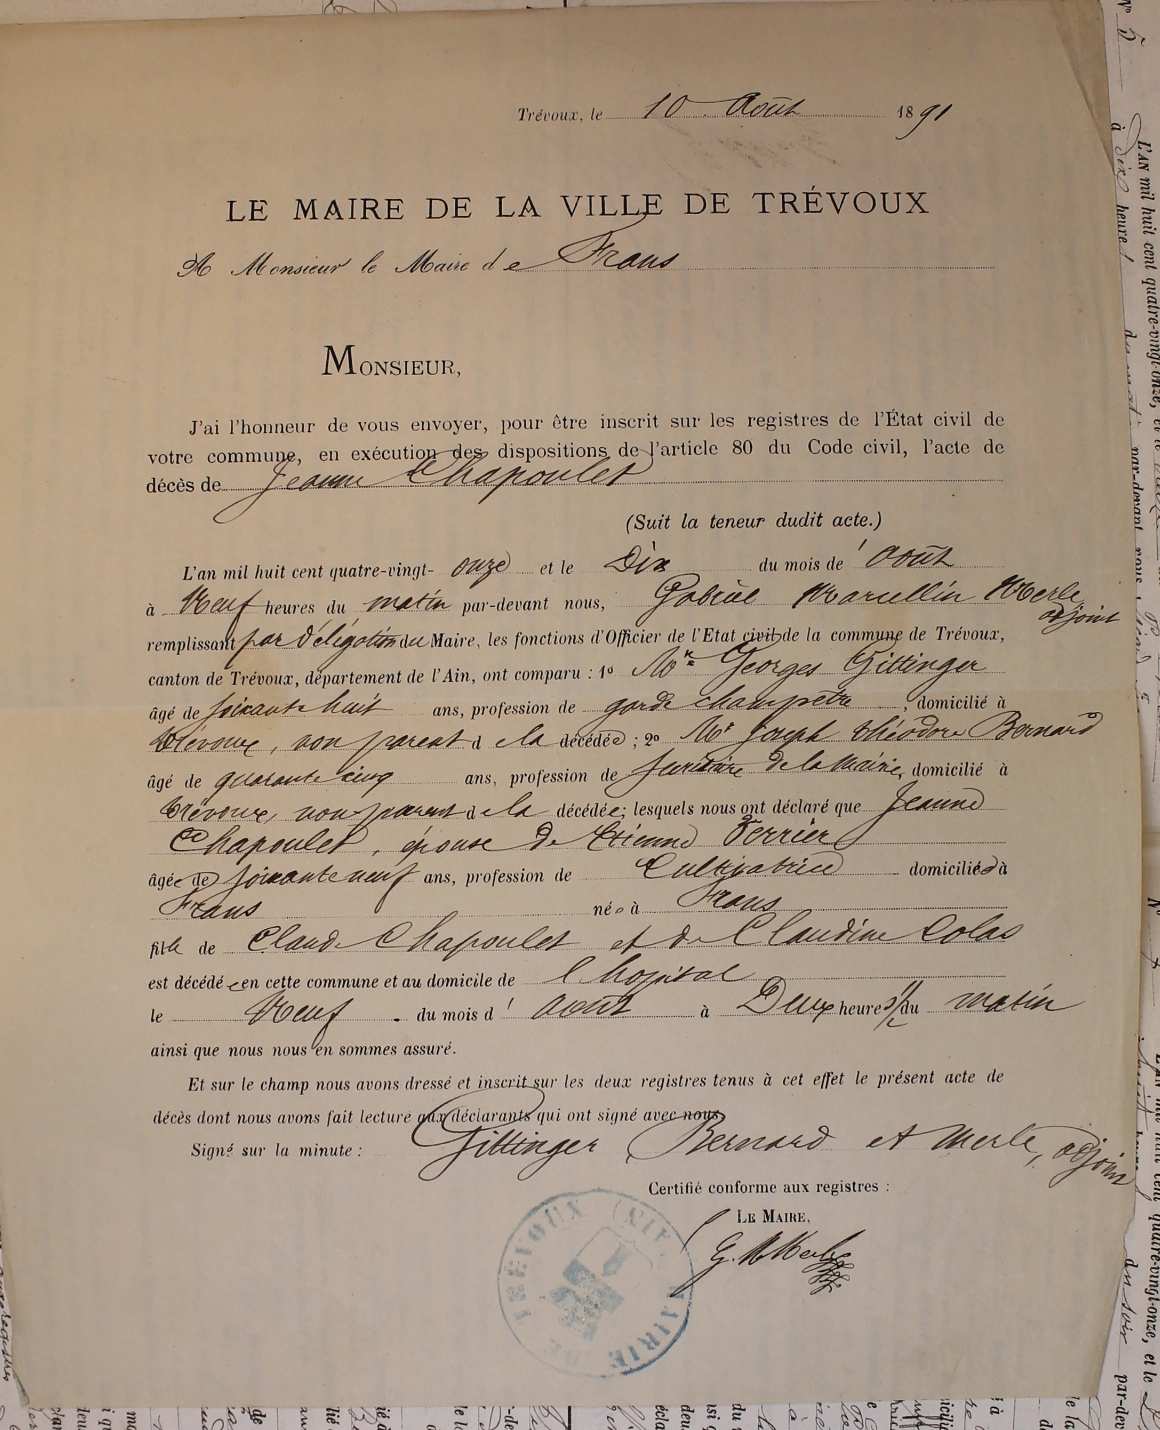 Trévoux, le 10 Août 1891
LE MAIRE DE LA VILLE DE TRÉVOUX
A Monsieur le Maire de Frans
MONSIEUR,
J'ai l'honneur de vous envoyer, pour être inscrit sur les registres de l'État civil de
votre commune, en exécution des dispositions de l'article 80 du Code civil, l'acte de
décès de Jeanne Chapoulet
(Suit la teneur dudit acte.)
L'an mil huit cent quatre-vingt- onze et le Dix du mois de août
à Neuf heures du matin par-devant nous, Gabriel Marcellin Merle
adjoint
remplissant par délégation du Maire, les fonctions d'Officier de l'Etat civil de la commune de Trévoux,
canton de Trévoux, département de l'Ain, ont comparu : 1º Mr Georges Gittinger
âgé de soixante huit ans, profession de garde champêtre, domicilié à
Trévoux, non parent de la décédée ; 2º Mr Joseph Théodore Bernard
âgé de quarante cinq ans, profession de secrétaire de la mairie, domicilié à
Trévoux, non parent de la décédée; lesquels nous ont déclaré que Jeanne
Chapoulet, épouse de Etienne Verrier
âgée de soixante neuf ans, profession de Cultivatrice domiciliée à
Frans née à Frans
fille de Claude Chapoulet et de Claudine Colas
est décédée en cette commune et au domicile de l'hopital
le Neuf du mois d'août à Deux heures 1/2 du matin
ainsi que nous nous en sommes assuré.
Et sur le champ nous avons dressé et inscrit sur les deux registres tenus à cet effet le présent acte de
décès dont nous avons fait lecture aux déclarants qui ont signé avec nous
Signé sur la minute : Gittinger, Bernard et Merle, adjoint
Certifié conforme aux registres :
LE MAIRE,
G. M Merle
MAIRIE DE TRÉVOUX